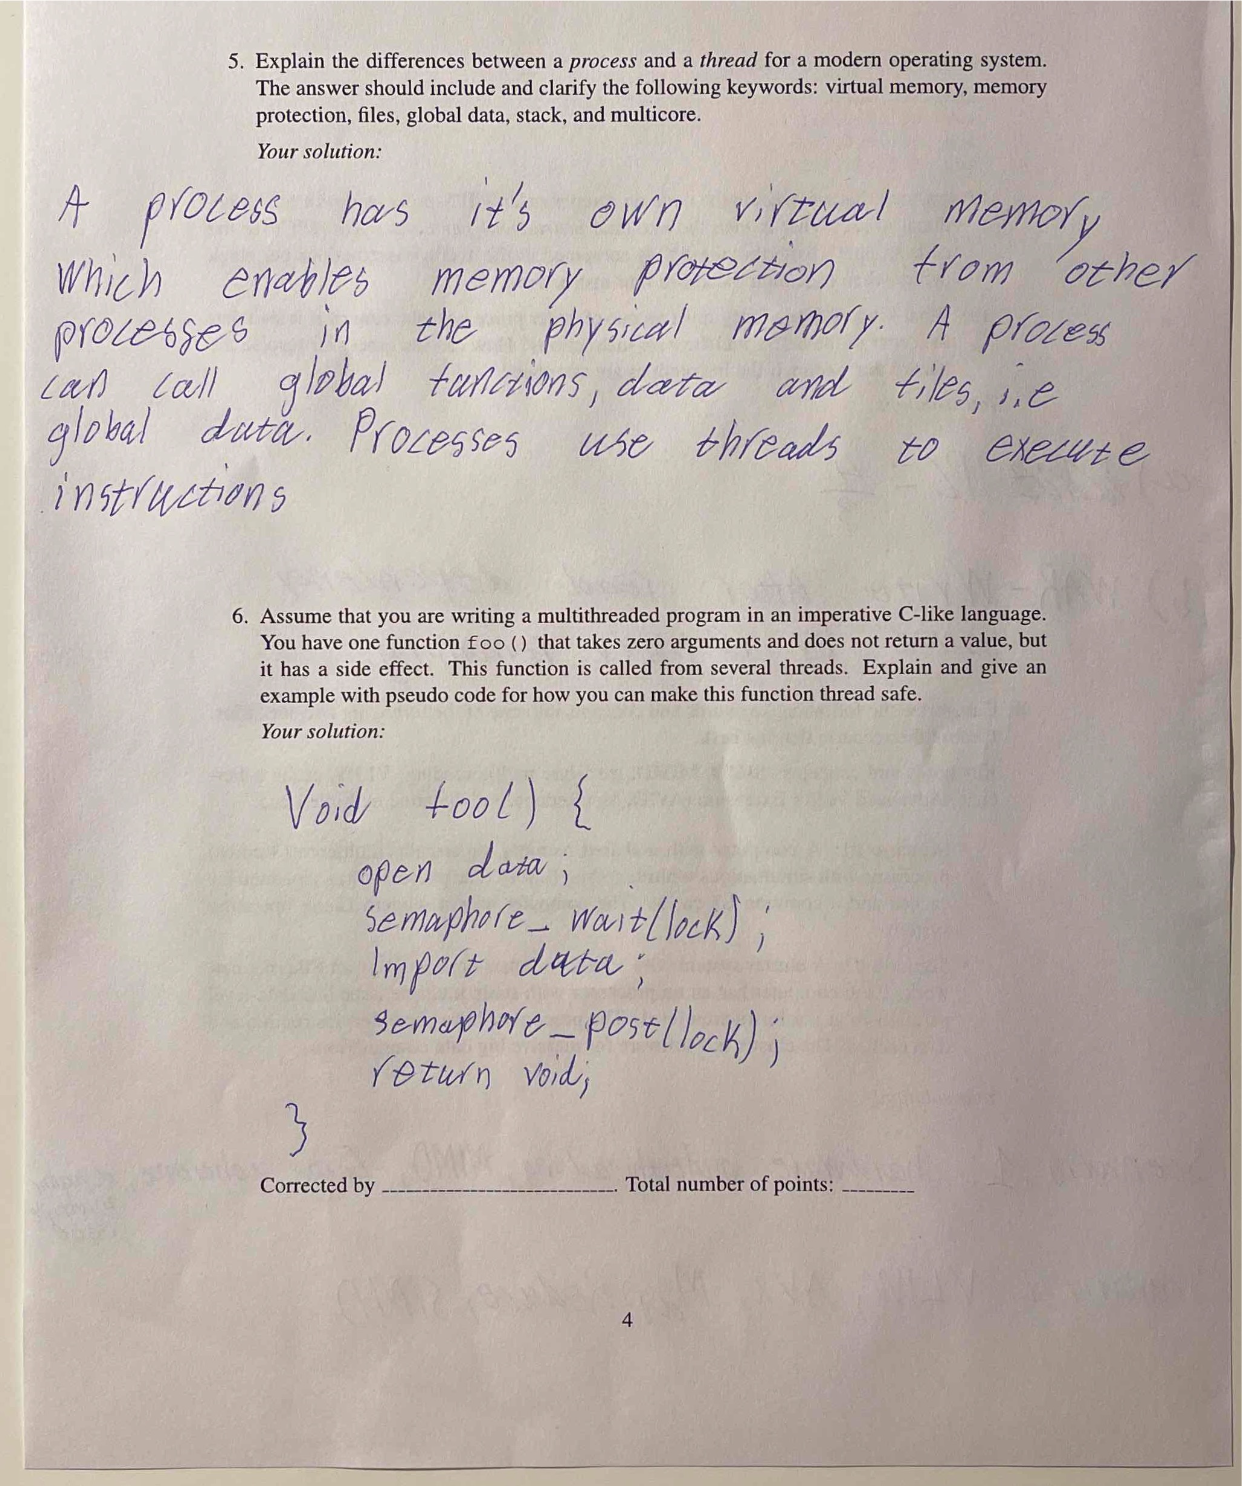 5. Explain the differences between a process and a thread for a modern operating system.
The answer should include and clarify the following keywords: virtual memory, memory
protection, files, global data, stack, and multicore.
Your solution:
A process has it's own virtual memory
which enables memory protection from other
processes in the physical memory. A process
can call global functions, data and files, i.e
global data. Processes use threads to execute
instructions
6. Assume that you are writing a multithreaded program in an imperative C-like language.
You have one function foo() that takes zero arguments and does not return a value, but
it has a side effect. This function is called from several threads. Explain and give an
example with pseudo code for how you can make this function thread safe.
Your solution:
Void foo() {
open data;
semaphore_wait(lock);
Import data;
semaphore_post(lock);
return void;
}
Corrected by . Total number of points:
4